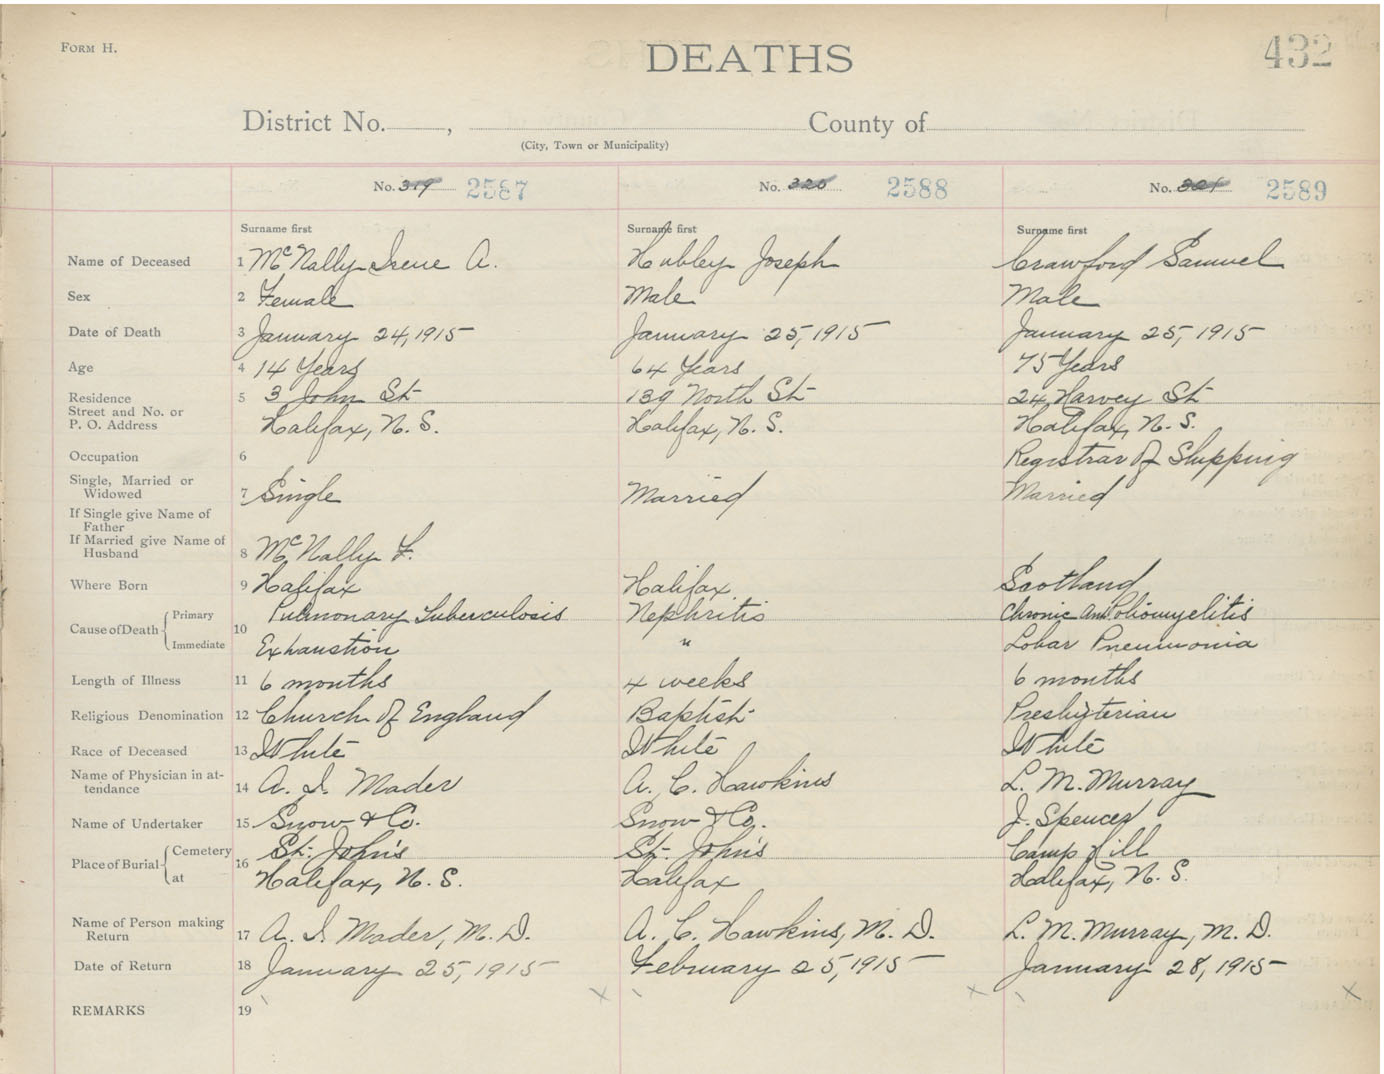 FORM H.
DEATHS
432
District No. , County of
(City, Town or Municipality)
No. 319 2587
No. 320 2588
No. 321 2589
Surname first
Surname first
Surname first
Name of Deceased 1 McNally Irene A. Hubley Joseph Crawford Samuel
Sex 2 Female Male Male
Date of Death 3 January 24, 1915 January 25, 1915 January 25, 1915
Age 4 14 Years 64 Years 75 Years
Residence 5 3 John St. 139 North St. 24 Harvey St.
Street and No. or
P. O. Address Halifax, N. S. Halifax, N. S. Halifax, N. S.
Occupation 6 Registrar of Shipping
Single, Married or
Widowed 7 Single Married Married
If Single give Name of
Father
If Married give Name of
Husband 8 McNally F.
Where Born 9 Halifax Halifax Scotland
Cause of Death 10
Primary Pulmonary Tuberculosis Nephritis Chronic Ant Poliomyelitis
Immediate Exhaustion " Lobar Pneumonia
Length of Illness 11 6 months 4 weeks 6 months
Religious Denomination 12 Church of England Baptist Presbyterian
Race of Deceased 13 White White White
Name of Physician in at-
tendance 14 A. I. Mader A. C. Hawkins L. M. Murray
Name of Undertaker 15 Snow & Co. Snow & Co. J. Spencer
Place of Burial 16
Cemetery St. John's St. John's Camp Hill
at Halifax, N. S. Halifax Halifax, N. S.
Name of Person making
Return 17 A. I. Mader, M. D. A. C. Hawkins, M. D. L. M. Murray, M. D.
Date of Return 18 January 25, 1915 February 25, 1915 January 28, 1915
REMARKS 19